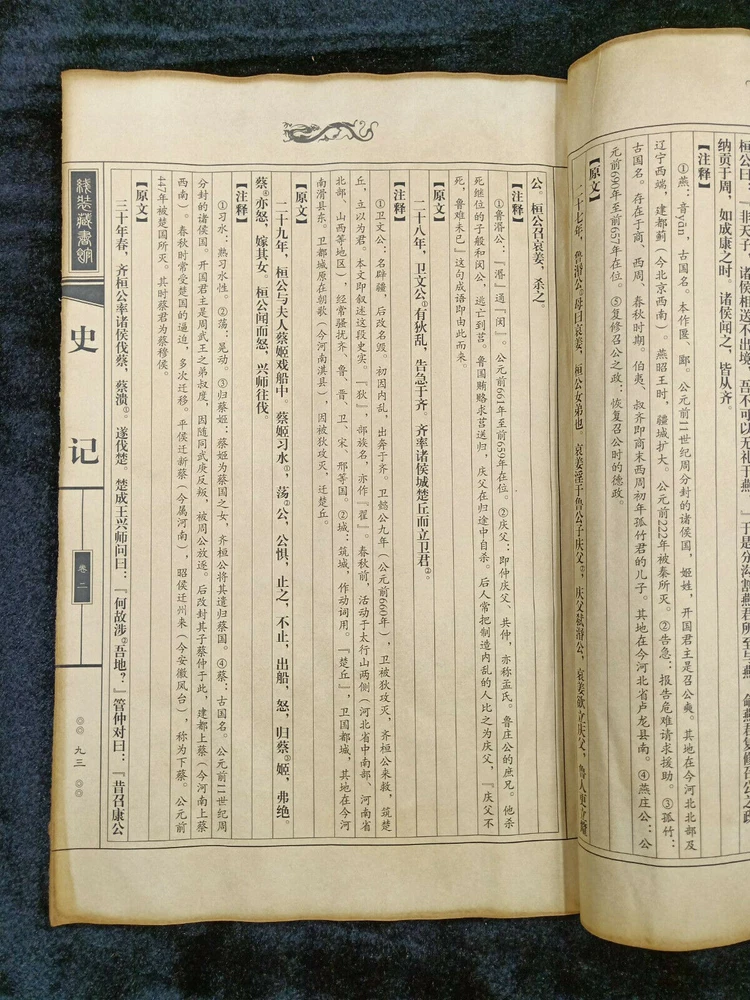 桓公曰："非天子，诸侯相送不出境，吾不可以无礼于燕。"于是分沟割燕君所至与燕，命燕君复修召公之政
纳贡于周，如成康之时。诸侯闻之，皆从齐。
【注释】
①燕：音yān，古国名。本作匽、郾。公元前11世纪周分封的诸侯国，姬姓，开国君主是召公奭。其地在今河北北部及
辽宁西端，建都蓟（今北京西南）。燕昭王时，疆域扩大。公元前222年被秦所灭。②告急：报告危难请求援助。③孤竹：
古国名。存在于商、西周、春秋时期。伯夷、叔齐即商末西周初年孤竹君的儿子。其地在今河北省卢龙县南。④燕庄公：公
元前690年至前657年在位。⑤复修召公之政：恢复召公时的德政。
【原文】
二十七年，鲁湣公①母曰哀姜，桓公女弟也。哀姜淫于鲁公子庆父②，庆父弑湣公，哀姜欲立庆父，鲁人更立
公。桓公召哀姜，杀之。
【注释】
①鲁湣公：『湣』通『闵』。公元前661年至前659年在位。②庆父：即仲庆父、共仲，亦称孟氏。鲁庄公的庶兄。他杀
死继位的子般和闵公，逃亡到莒。鲁国贿赂求莒送归，庆父在归途中自杀。后人常把制造内乱的人比之为庆父，『庆父不
死，鲁难未已』这句成语即由此而来。
【原文】
二十八年，卫文公①有狄乱，告急于齐。齐率诸侯城楚丘而立卫君②。
【注释】
①卫文公：名辟疆，后改名毁。初因内乱，出奔于齐。卫懿公九年（公元前660年），卫被狄攻灭，齐桓公来救，筑楚
丘，立以为君。本文即叙述这段史实。『狄』，部族名，亦作『翟』。春秋前，活动于太行山两侧（河北省中南部、河南省
北部、山西等地区），经常骚扰齐、鲁、晋、卫、宋、邢等国。②城：筑城，作动词用。『楚丘』，卫国都城，其地在今河
南滑县东。卫都城原在朝歌（今河南淇县），因被狄攻灭，迁楚丘。
【原文】
二十九年，桓公与夫人蔡姬戏船中。蔡姬习水①，荡②公，公惧，止之，不止，出船，怒，归蔡③姬，弗绝。
蔡④亦怒，嫁其女。桓公闻而怒，兴师往伐。
【注释】
①习水：熟习水性。②荡：晃动。③归蔡姬：蔡姬为蔡国之女，齐桓公将其遣归蔡国。④蔡：古国名。公元前11世纪周
分封的诸侯国。开国君主是周武王之弟叔度，因随同武庚反叛，被周公放逐。后改封其子蔡仲于此，建都上蔡（今河南上蔡
西南）。春秋时常受楚国的逼迫，多次迁移。平侯迁新蔡（今属河南），昭侯迁州来（今安徽凤台），称为下蔡。公元前
447年被楚国所灭。其时蔡君为蔡穆侯。
【原文】
三十年春，齐桓公率诸侯伐蔡，蔡溃①。遂伐楚。楚成王兴师问曰：『何故涉②吾地？』管仲对曰：『昔召康公
线装藏书馆
史记
卷二
九三